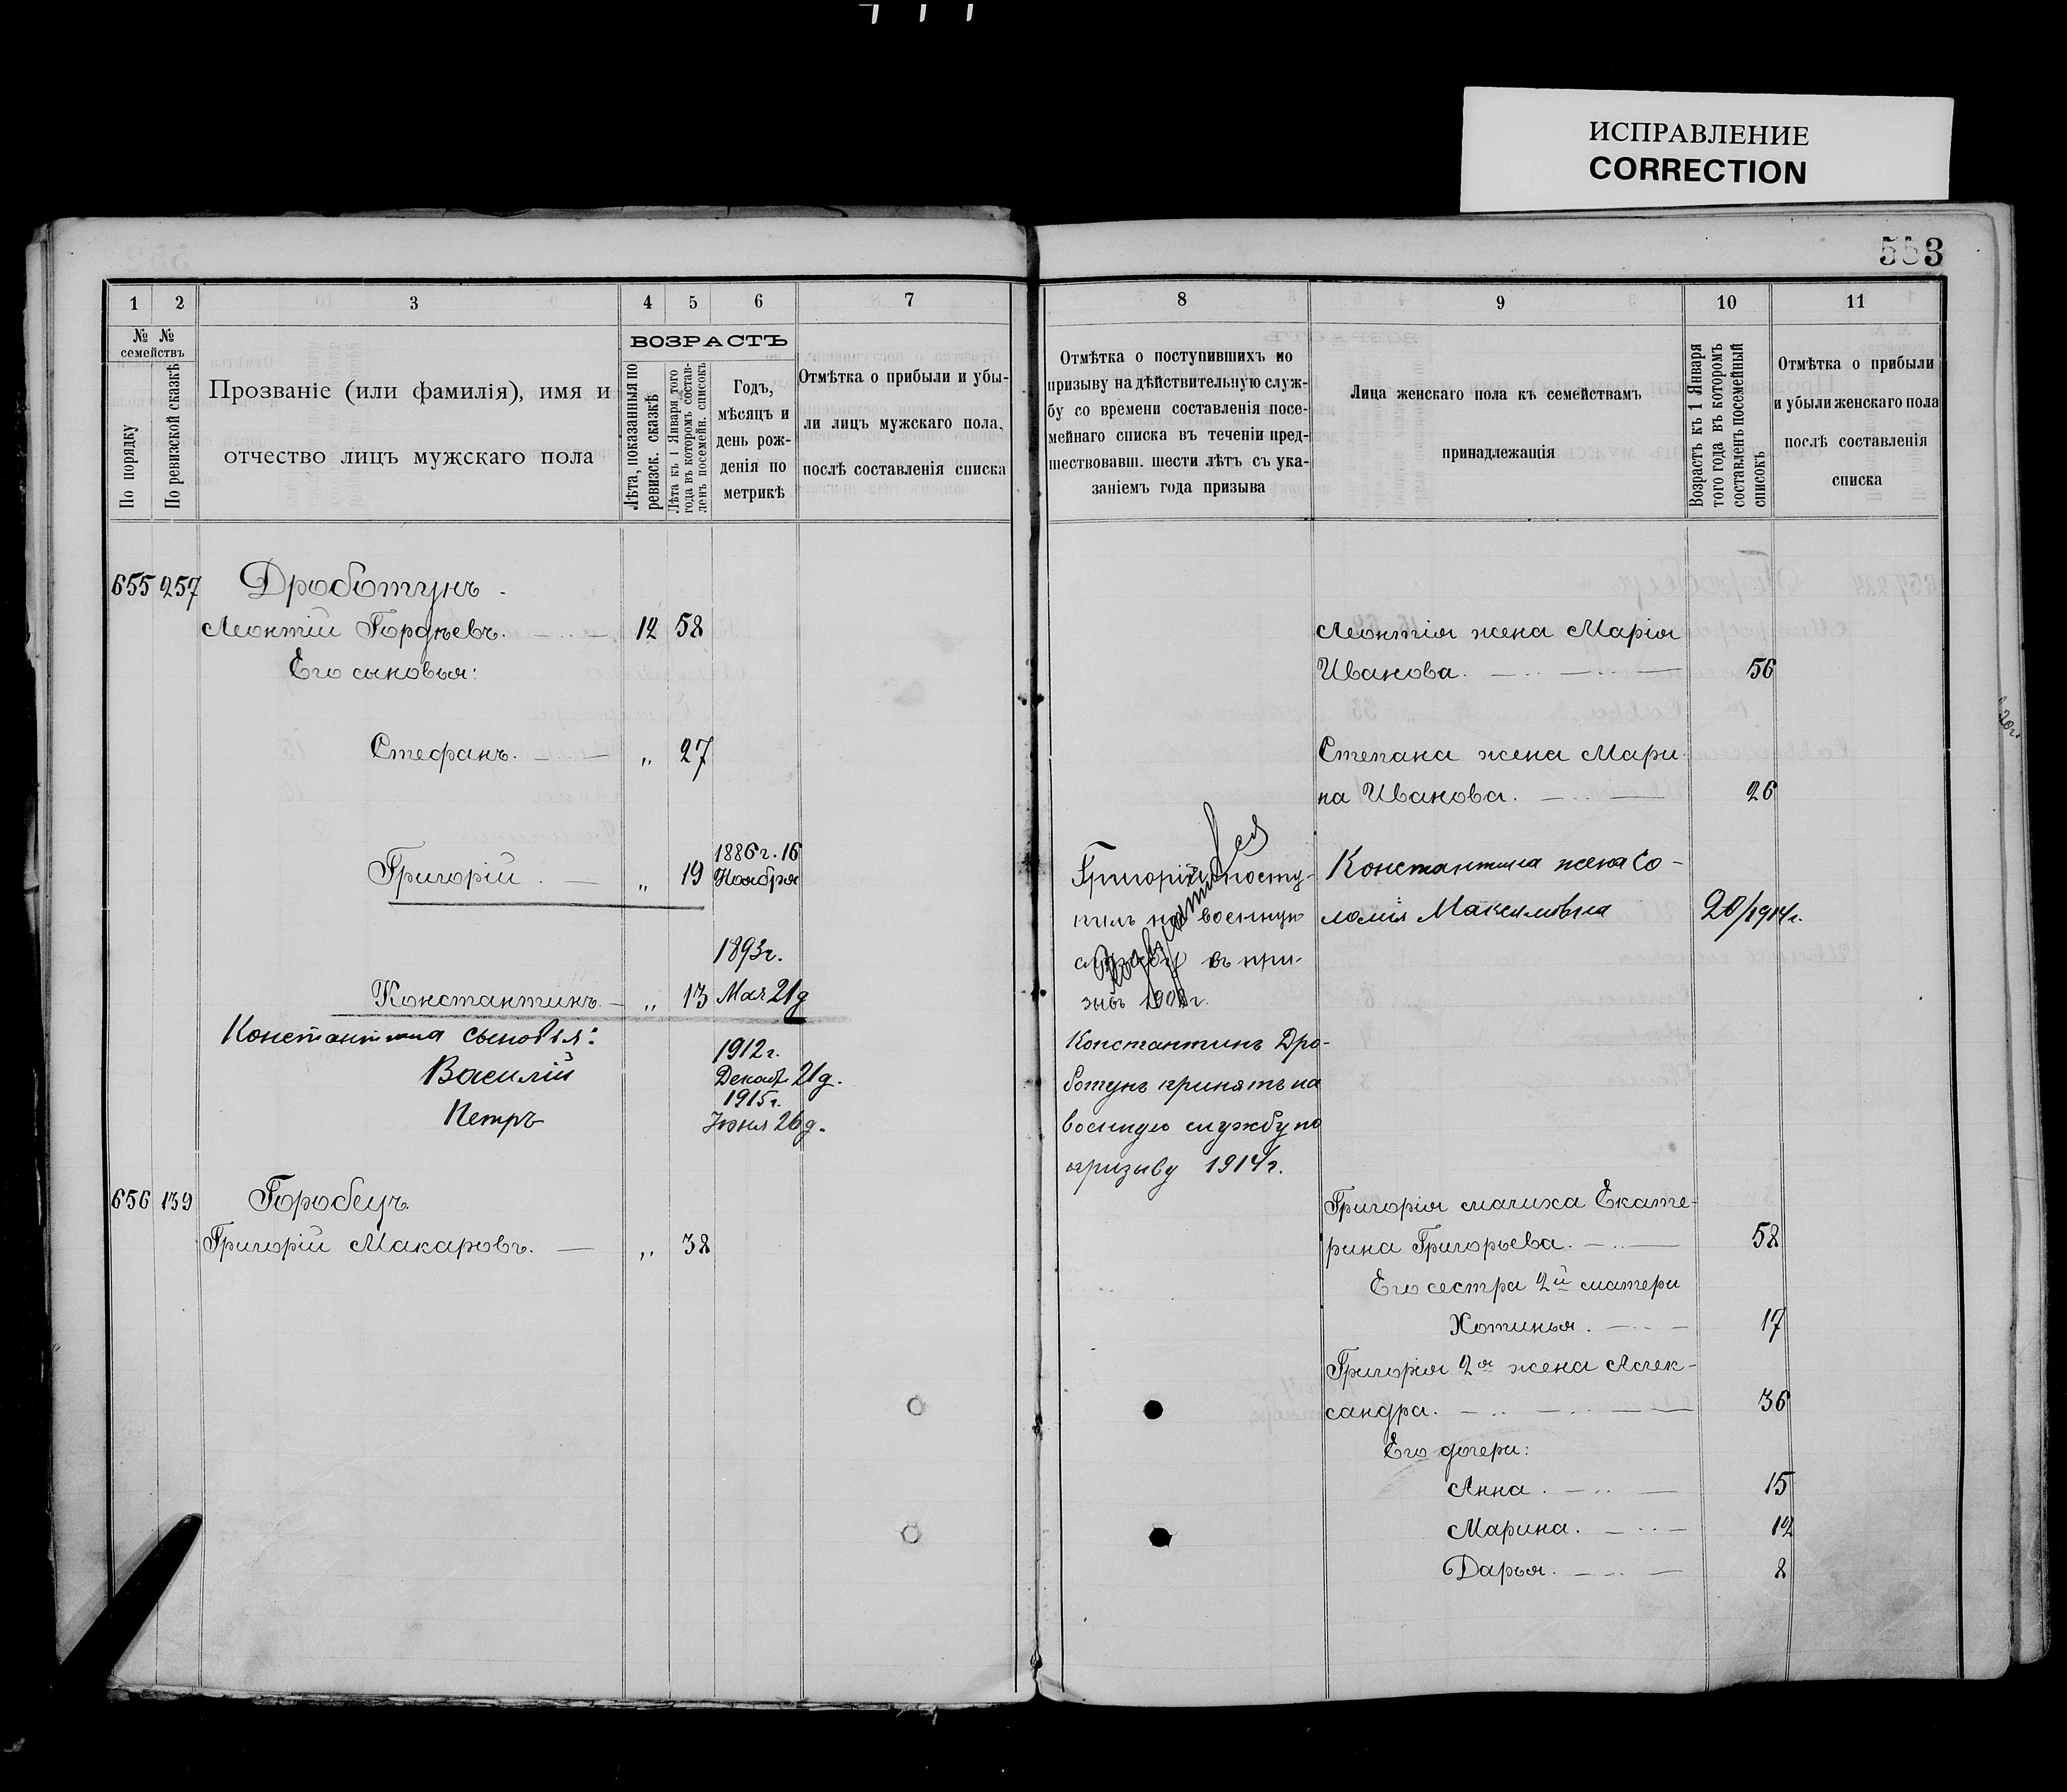 ИСПРАВЛЕНИЕ
CORRECTION
553
1 2 3 4 5 6 7
№ № семействъ
По порядку
По ревизской сказкѣ
Прозваніе (или фамилія), имя и
отчество лицъ мужскаго пола
ВОЗРАСТЪ
Лѣта, показанныя по
ревизск. сказкѣ
Лѣта къ 1 Января того
года въ которомъ состав-
ленъ посемейн. списокъ
Годъ,
мѣсяцъ и
день рож-
денія по
метрикѣ
Отмѣтка о прибыли и убы-
ли лицъ мужскаго пола,
послѣ составленія списка
655 257 Дроботунъ.
Леонтій Гордѣевъ. 12 58
Его сыновья:
Стефанъ. „ 27
Григорій. „ 19 1886г. 16
Ноября
1893г.
Константинъ. „ 13 Мая 21д
Константина сыновья:
1912г.
Василій Декаб. 21д.
1915г.
Петръ Іюня 26д.
656 139 Горобецъ.
Григорій Макаровъ. „ 38
8 9 10 11
Отмѣтка о поступившихъ по
призыву на дѣйствительную служ-
бу со времени составленія посе-
мейнаго списка въ теченіи пред-
шествовавш. шести лѣтъ съ ука-
заніемъ года призыва
Лица женскаго пола къ семействамъ
принадлежащія
Возрастъ къ 1 Января
того года въ которомъ
составленъ посемейный
списокъ
Отмѣтка о прибыли
и убыли женскаго пола
послѣ составленія
списка
Леонтія жена Марія
Иванова. 56
Степана жена Мари-
на Иванова. 26
Григорій посту-
пилъ на военную
службу въ при-
зывъ
Константина жена Со-
ломія Максимовна 20/1914г.
Константинъ Дро-
ботунъ принятъ на
военную службу по
призыву 1914г.
Григорія мачиха Екате-
рина Григорьева. 58
Его сестра 2й матери
Хотинья. 17
Григорія 2я жена Алек-
сандра. 36
Его дочери:
Анна. 15
Марина. 12
Дарья. 8